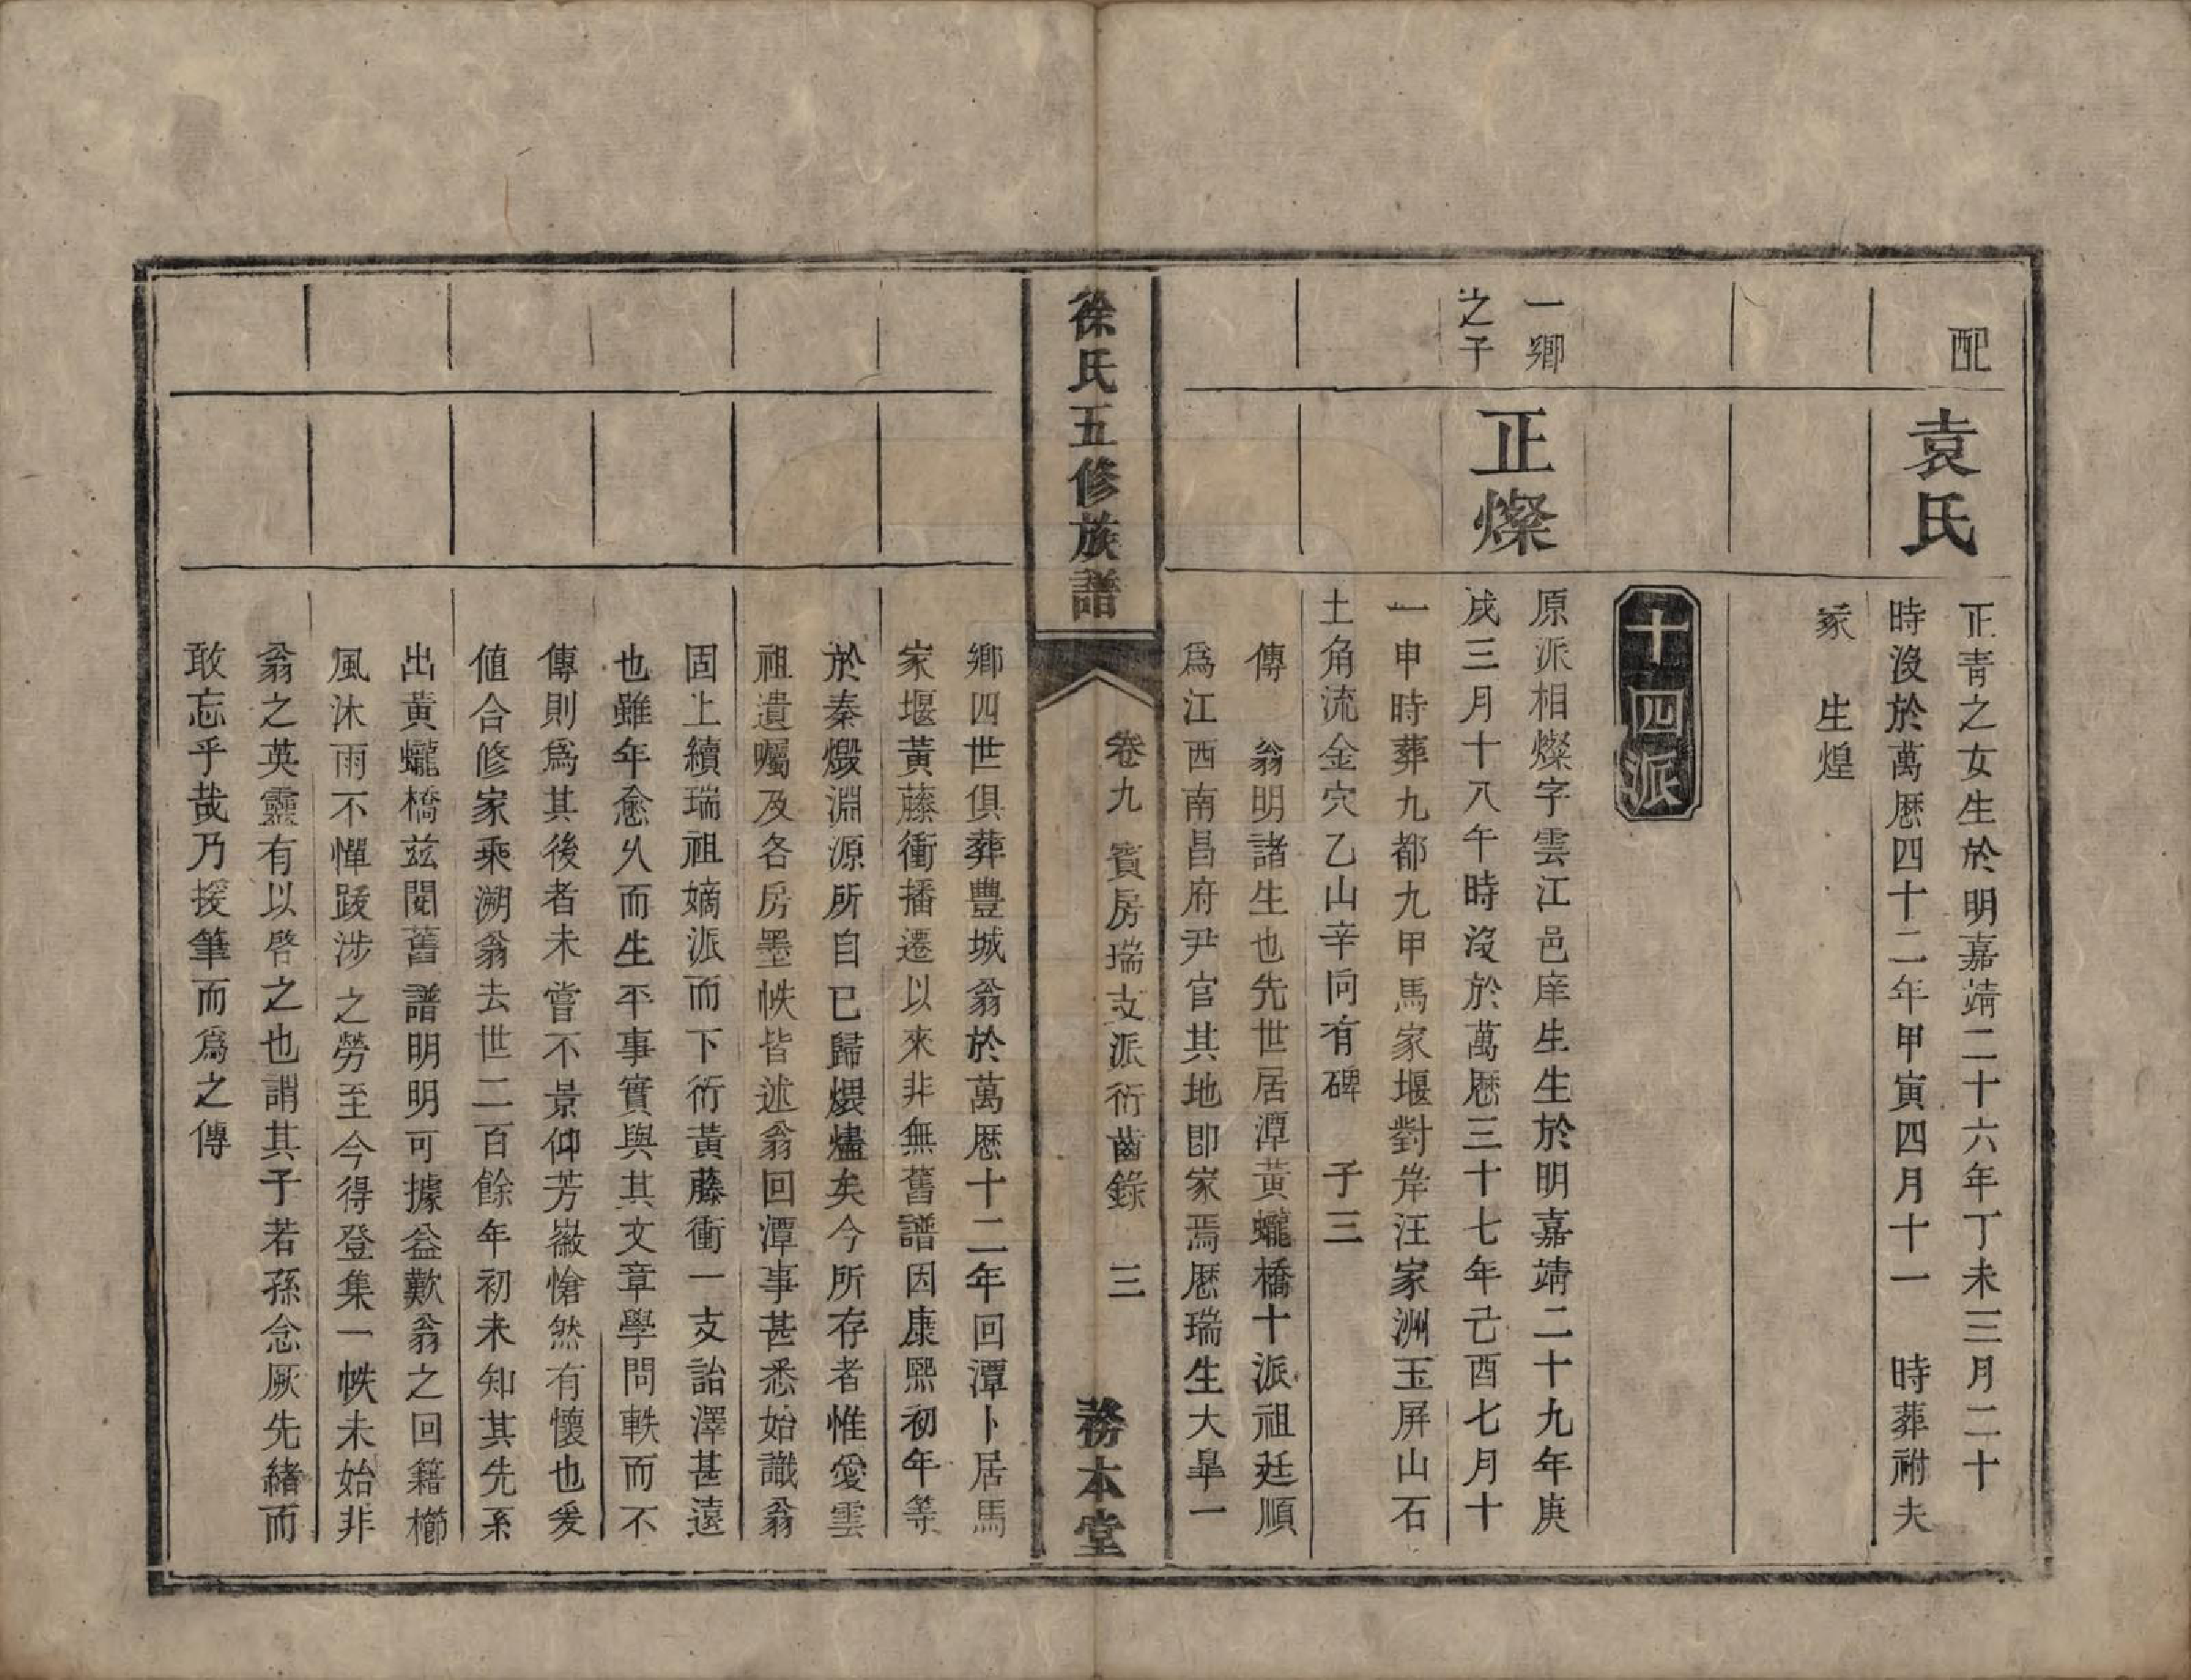 配
袁氏
正青之女生於明嘉靖二十六年丁未三月二十
時沒於萬厯四十二年甲寅四月十一　時葬祔夫
冢　生煌
十四派
一鄉
之子
正燦
原派相燦字雲江邑庠生生於明嘉靖二十九年庚
戌三月十八午時沒於萬厯三十七年己酉七月十
一申時葬九都九甲馬家堰對岸汪家洲玉屏山石
土角流金穴乙山辛向有碑　子三
傳　翁明諸生也先世居潭黃蠬橋十派祖廷順
爲江西南昌府尹官其地卽家焉厯瑞生大臯一
徐氏五修族譜
卷九　賓房瑞支派衍齒錄　三
務本堂
鄉四世俱葬豐城翁於萬厯十二年回潭卜居馬
家堰黃藤衝播遷以來非無舊譜因康熙初年等
於秦燬淵源所自已歸煨燼矣今所存者惟愛雲
祖遺囑及各房墨帙皆述翁回潭事甚悉始識翁
固上續瑞祖嫡派而下衍黃藤衝一支詒澤甚遠
也雖年愈久而生平事實與其文章學問軼而不
傳則爲其後者未嘗不景仰芳徽愴然有懷也爰
值合修家乘溯翁去世二百餘年初未知其先系
出黃蠬橋玆閱舊譜明明可據益歎翁之回籍櫛
風沐雨不憚跋涉之勞至今得登集一帙未始非
翁之英靈有以啓之也謂其子若孫念厥先緒而
敢忘乎哉乃援筆而爲之傳